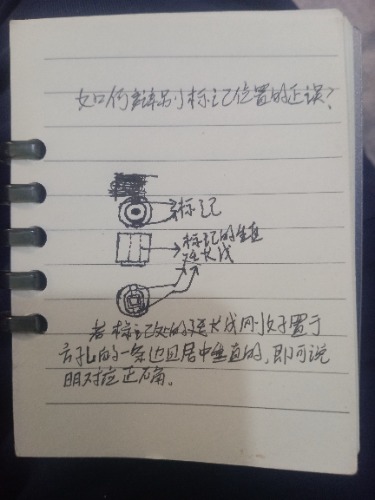 如何辩别标记位置的正误?
标记
标记的垂直
延长线
若标记处的延长线刚好置于
方孔的一条边且居中垂直的,即可说
明对应正确。